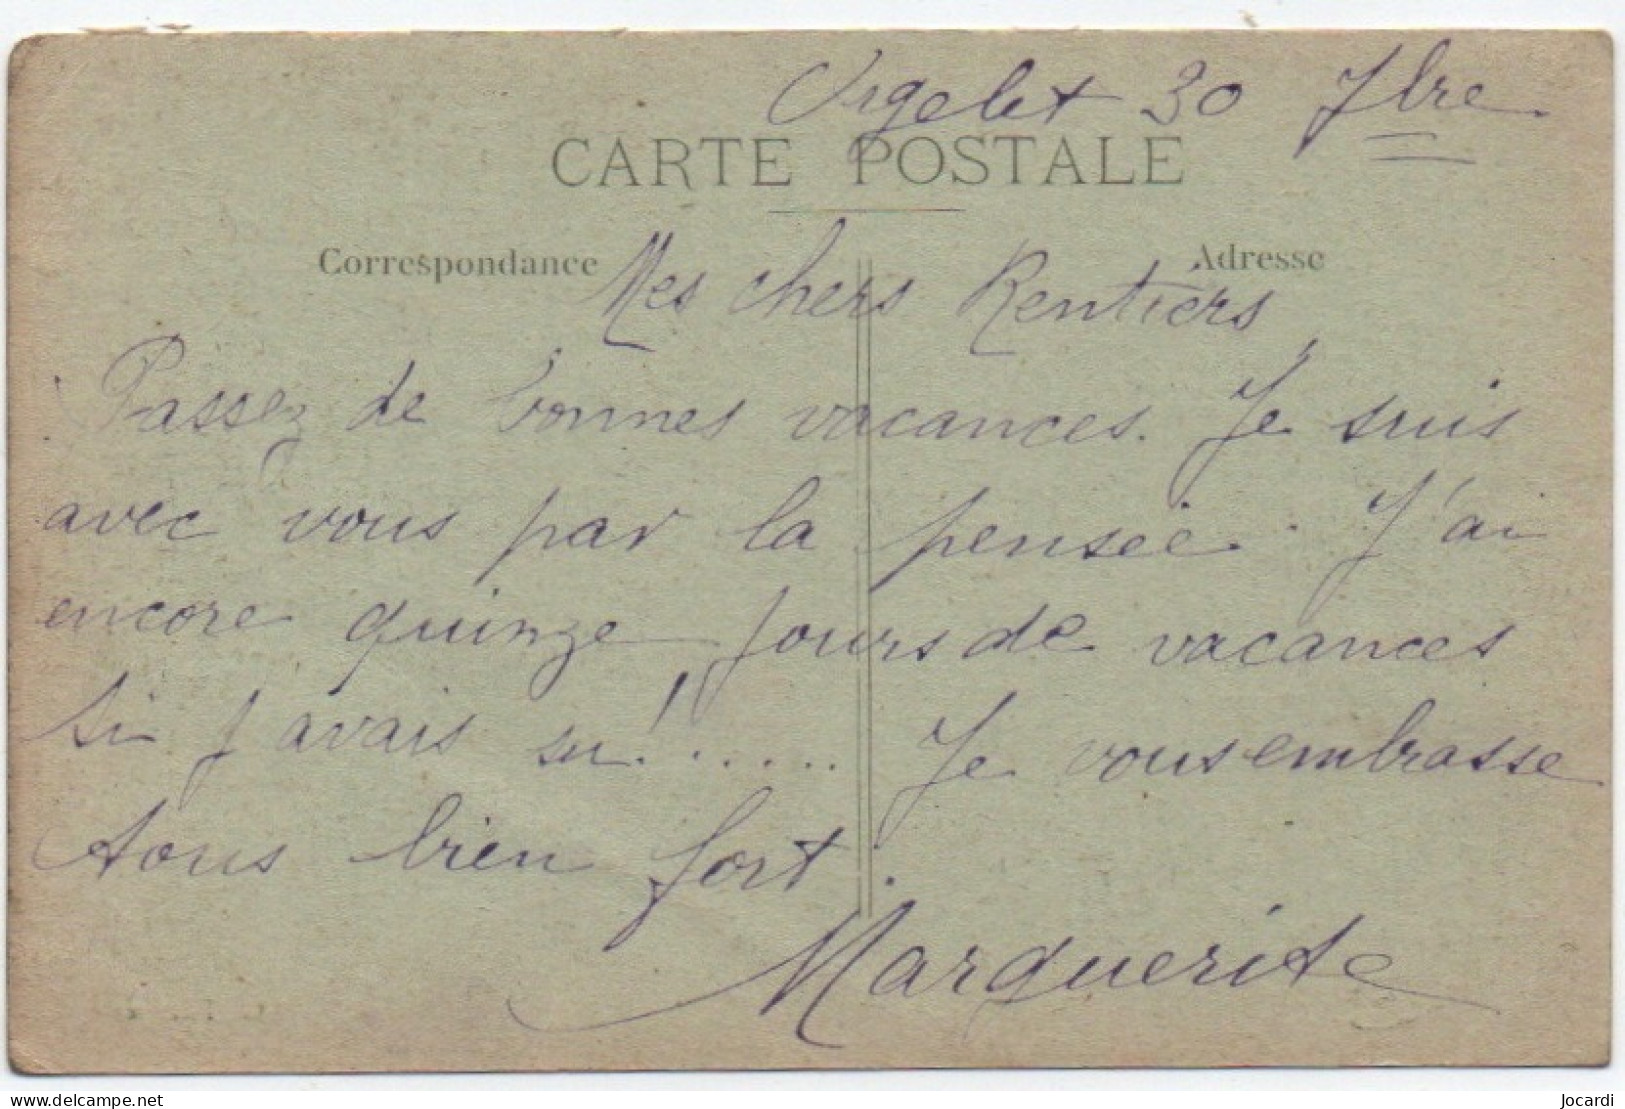 Orgelet 30 7bre
CARTE POSTALE
Correspondance
Adresse
Mes chers Rentiers
Passez de bonnes vacances. Je suis
avec vous par la pensée. J'ai
encore quinze jours de vacances
si j'avais su!..... Je vous embrasse
tous bien fort.
Marguerite
delcampe.net
Jocardi